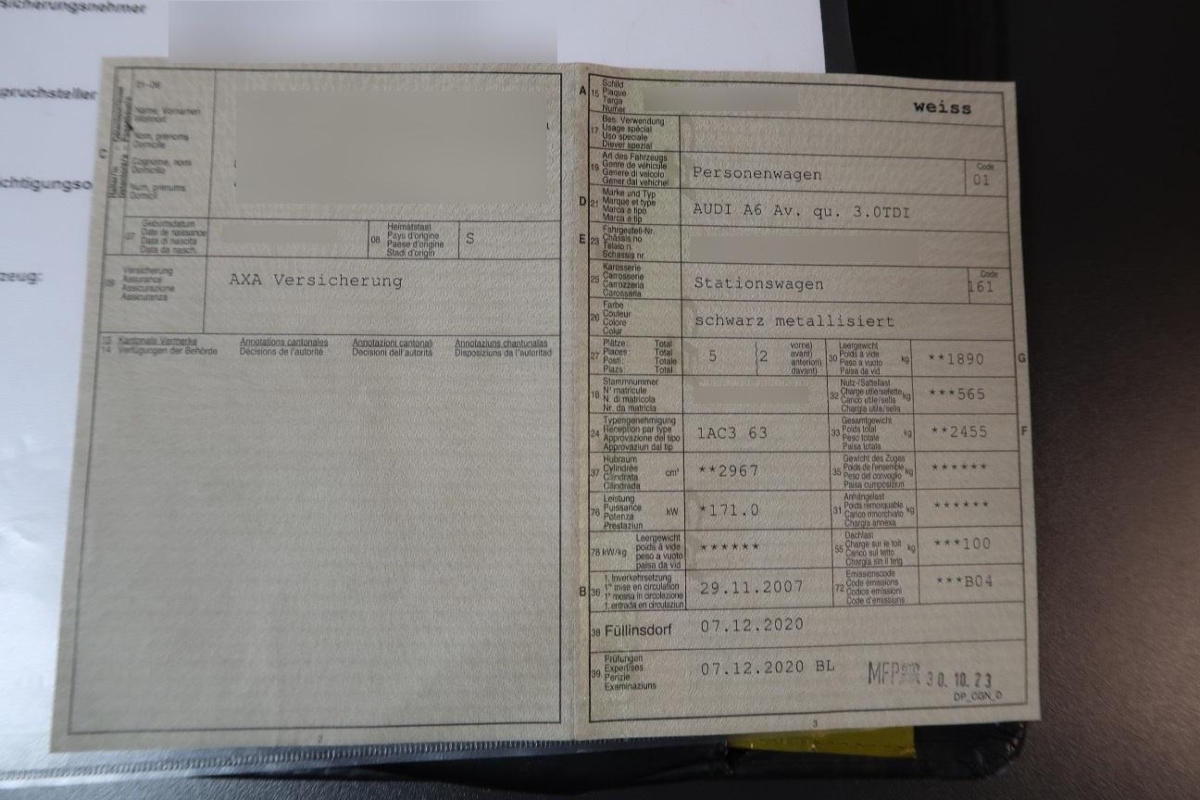 sicherungsnehmer
pruchsteller
chtigungso
zeug:
01-06
Name, Vornamen
Wohnort
Nom, prénoms
Domicile
Cognome, nomi
Domicilio
Num, prenums
Domicil
C
07
Geburtsdatum
Date de naissance
Data di nascita
Data da nasch.
08
Heimatstaat
Pays d'origine
Paese d'origine
Stadi d'origin
S
09
Versicherung
Assurance
Assicurazione
Assicuranza
AXA Versicherung
13 Kantonale Vermerke Annotations cantonales Annotazioni cantonali Annotaziuns chantunalas
14 Verfügungen der Behörde Décisions de l'autorité Decisioni dell'autorità Disposiziuns da l'autoritad
2
A 15
Schild
Plaque
Targa
Numer
weiss
17
Bes. Verwendung
Usage spécial
Uso speciale
Diever spezial
19
Art des Fahrzeugs
Genre de véhicule
Genere di veicolo
Gener dal vehichel
Personenwagen
Code
01
D 21
Marke und Typ
Marque et type
Marca e tipo
Marca e tip
AUDI A6 Av. qu. 3.0TDI
E 23
Fahrgestell-Nr.
Châssis no
Telaio n.
Schassis nr.
25
Karosserie
Carrosserie
Carrozzeria
Carossaria
Stationswagen
Code
161
26
Farbe
Couleur
Colore
Colur
schwarz metallisiert
27
Plätze: Total
Places: Total
Posti: Totale
Plazs: Total
5
2
vorne)
avant)
anteriori)
davant)
30
Leergewicht
Poids à vide
Peso a vuoto
Paisa da vid
kg
**1890
G
18
Stammnummer
N° matricule
N. di matricola
Nr. da matricla
32
Nutz-/Sattellast
Charge utile/sellette
Carico utile/sella
Chargia utila/sella
kg
***565
24
Typengenehmigung
Réception par type
Approvazione del tipo
Approvaziun dal tip
1AC3 63
33
Gesamtgewicht
Poids total
Peso totale
Paisa totala
kg
**2455
F
37
Hubraum
Cylindrée
Cilindrata
Cilindrada
cm³
**2967
35
Gewicht des Zuges
Poids de l'ensemble
Peso del convoglio
Paisa cumposiziun
kg
******
76
Leistung
Puissance
Potenza
Prestaziun
kW
*171.0
31
Anhängelast
Poids remorquable
Carico rimorchiato
Chargia annexa
kg
******
78 kW/kg
Leergewicht
poids à vide
peso a vuoto
paisa da vid
******
55
Dachlast
Charge sur le toit
Carico sul tetto
Chargia sin il tetg
kg
***100
B 36
1. Inverkehrsetzung
1re mise en circulation
1a messa in circolazione
1. entrada en circulaziun
29.11.2007
72
Emissionscode
Code émissions
Codice emissioni
Code d'emissiuns
***B04
38 Füllinsdorf
07.12.2020
39
Prüfungen
Expertises
Perizie
Examinaziuns
07.12.2020 BL
MFP
30.10.23
DP_CGN_D
3